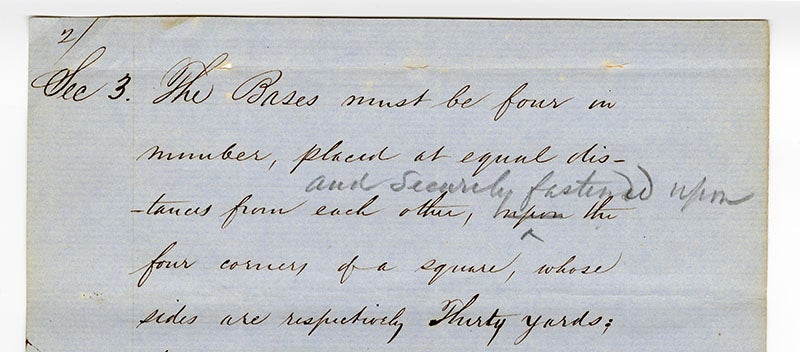 2/
Sec 3. The Bases must be four in
number, placed at equal dis-
and Securely fastened upon
-tances from each other, upon the
four corners of a square, whose
sides are respectively Thirty yards;